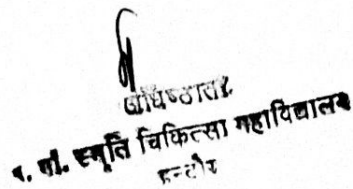 अधिष्ठाता
म. गाँ. स्मृति चिकित्सा महाविद्यालय
इन्दौर